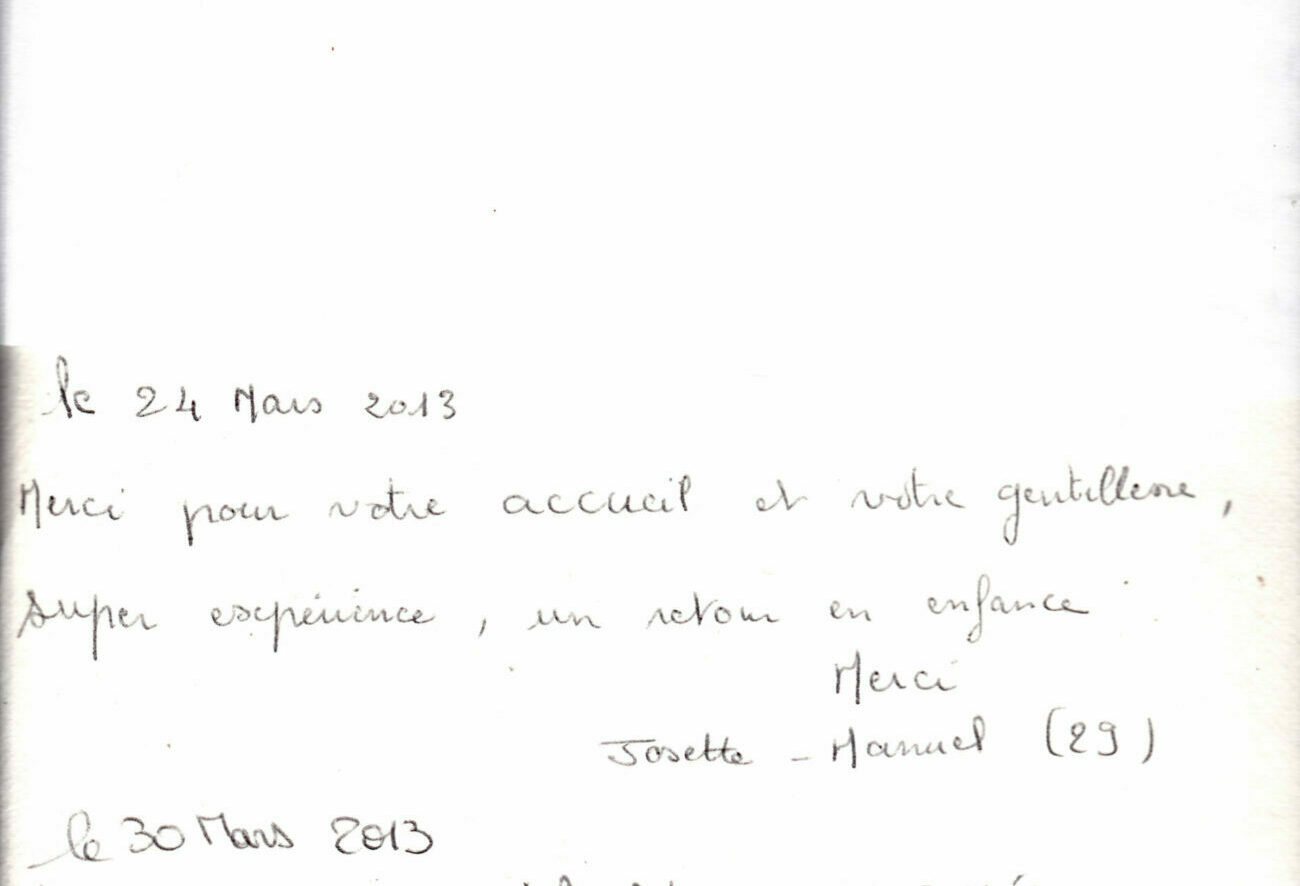 le 24 Mars 2013
Merci pour votre accueil et votre gentillesse,
super expérience, un retour en enfance
Merci
Josette - Manuel (29)
le 30 Mars 2013